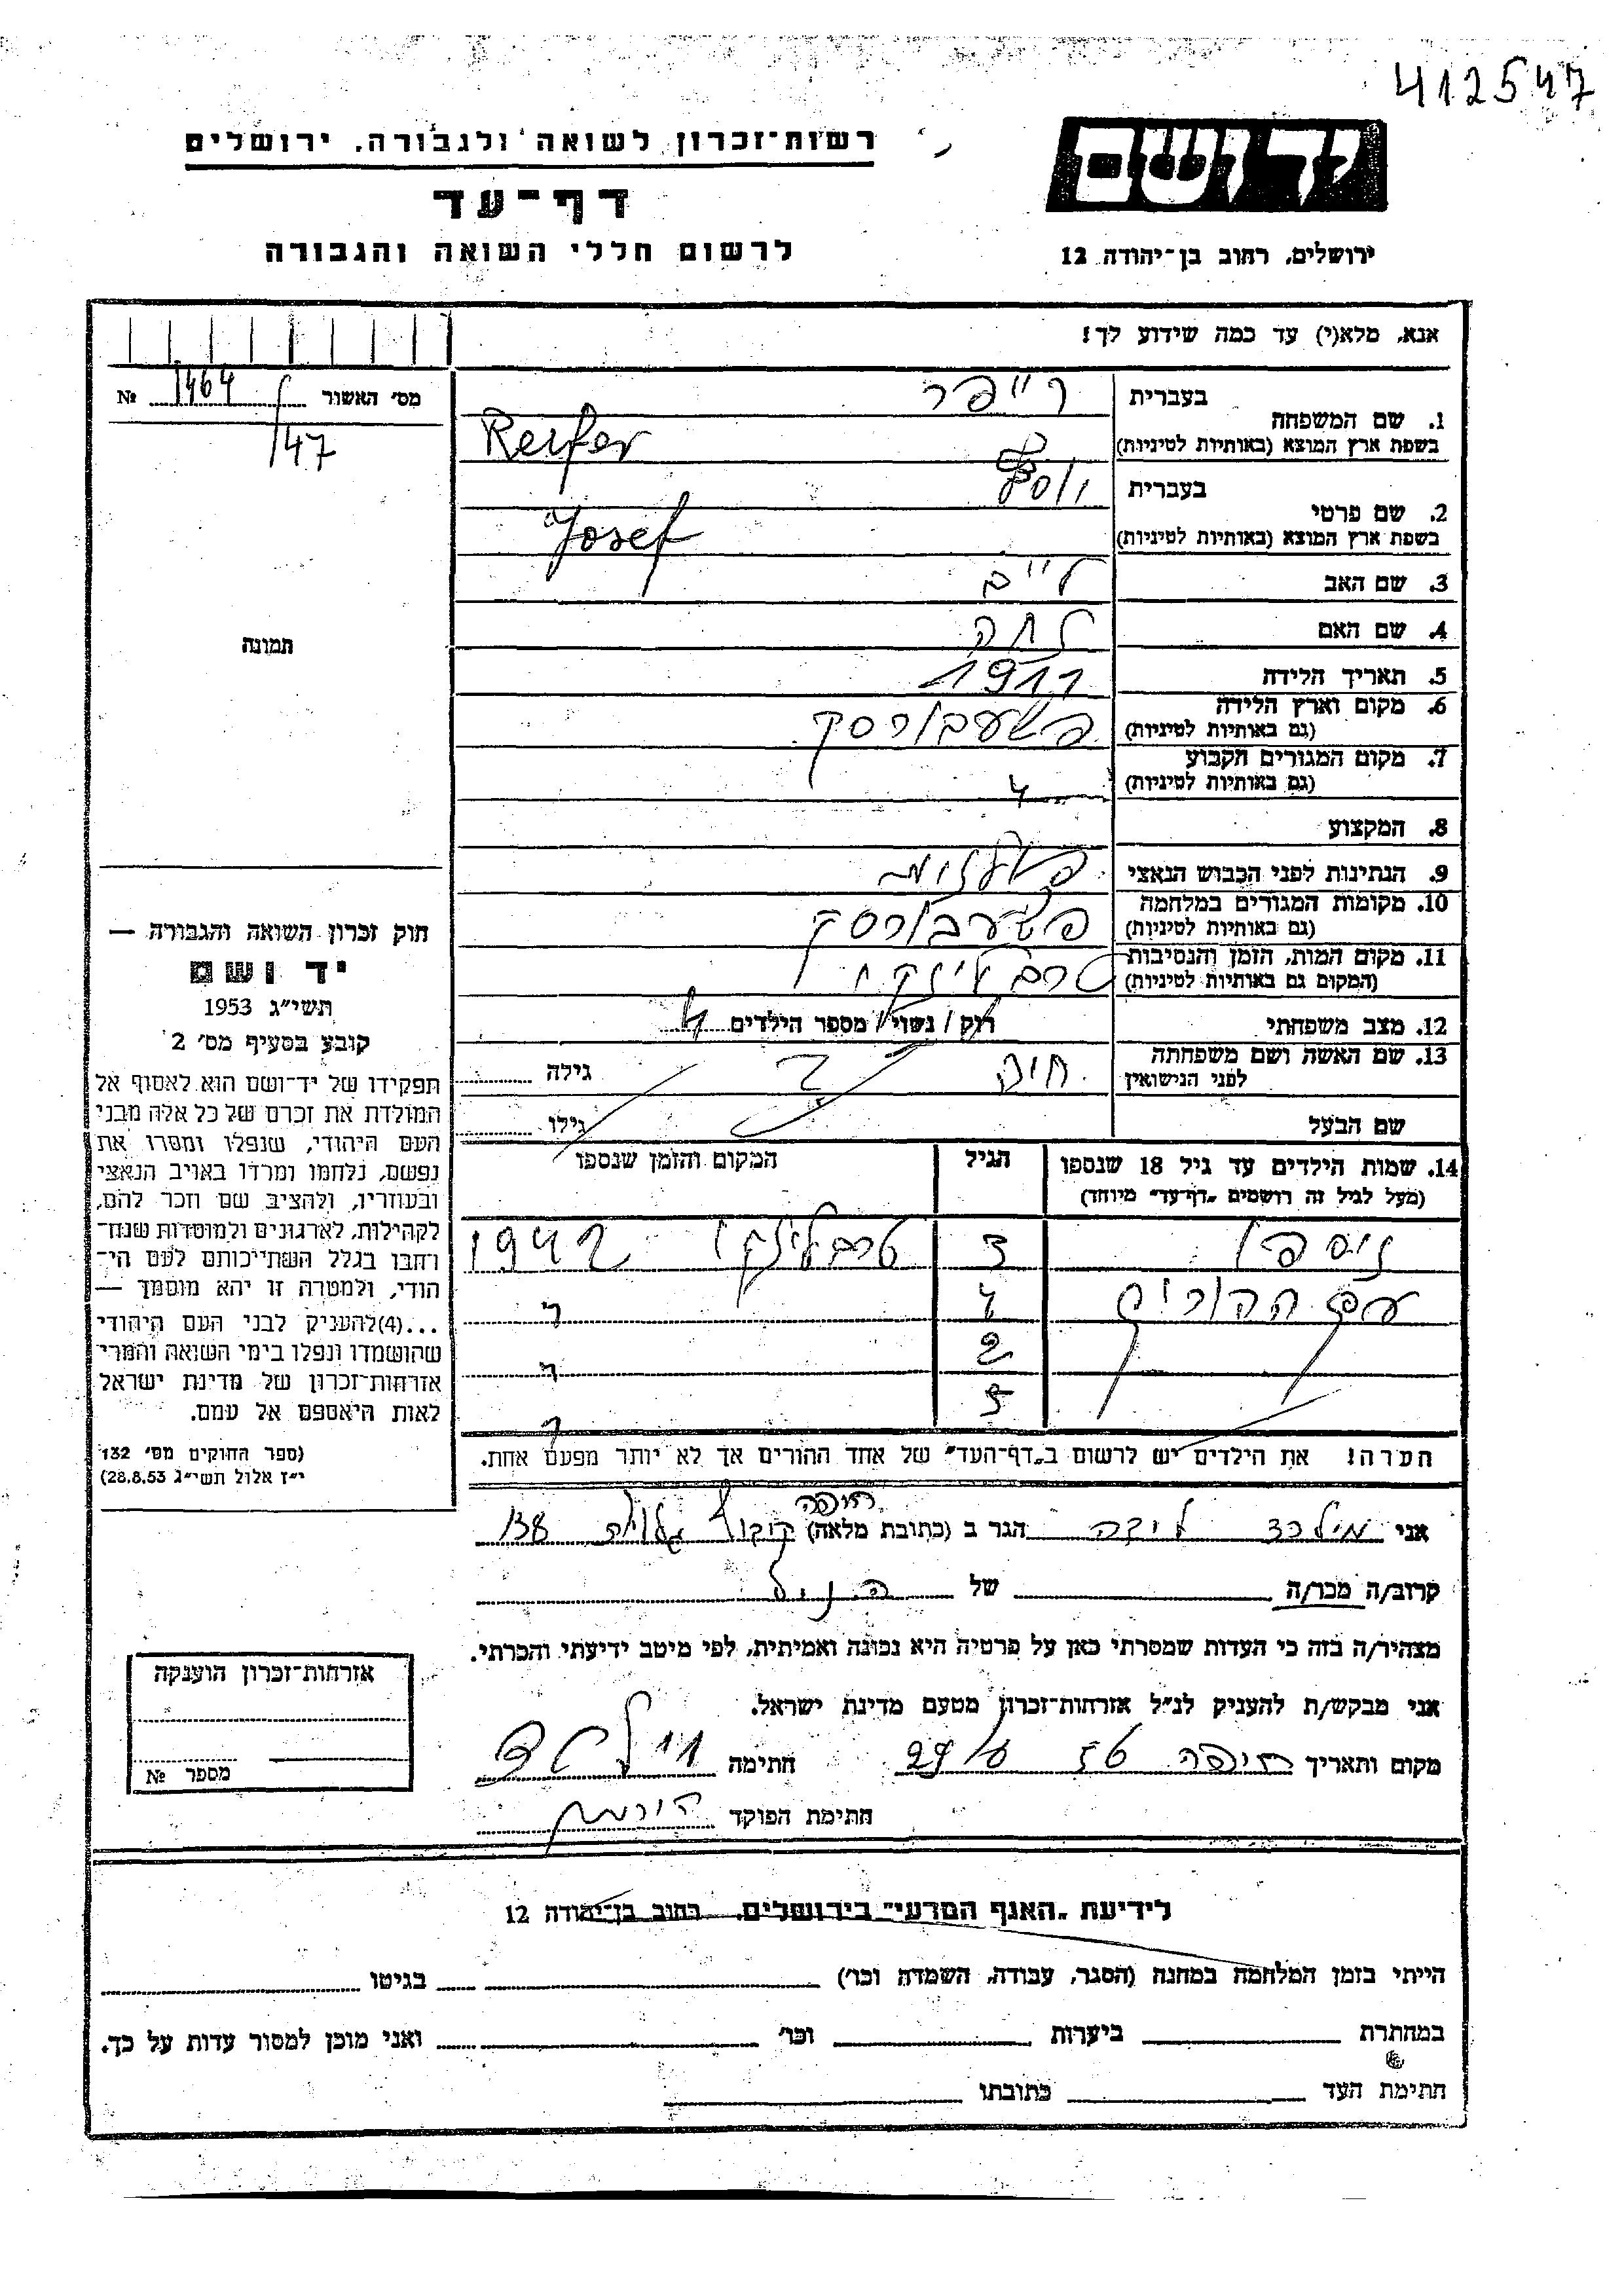 412547
רשות־זכרון לשואה ולגבורה. ירושלים
דף־עד
לרשום חללי השואה והגבורה
יד ושם
ירושלים, רחוב בן־יהודה 12
אנא, מלא(י) עד כמה שידוע לך!
מס׳ האשור 1464 №
147
תמונה
1. שם המשפחה
בעברית רייפר
בשפת ארץ המוצא (באותיות לטיניות) Reifer
2. שם פרטי
בעברית יוסף
בשפת ארץ המוצא (באותיות לטיניות) Josef
3. שם האב
4. שם האם
5. תאריך הלידה 1911
6. מקום וארץ הלידה
(גם באותיות לטיניות) פשעבורסק
7. מקום המגורים הקבוע
(גם באותיות לטיניות)
8. המקצוע
9. הנתינות לפני הכבוש הנאצי
10. מקומות המגורים במלחמה
(גם באותיות לטיניות) פשעבורסק
11. מקום המות, הזמן והנסיבות
(המקום גם באותיות לטיניות) טרבלינקי
12. מצב משפחתי רוק / נשוי / מספר הילדים 4
13. שם האשה ושם משפחתה
לפני הנישואין חיה ? גילה
שם הבעל גילו
14. שמות הילדים עד גיל 18 שנספו
(מעל לגיל זה רושמים „דף־עד״ מיוחד)
הגיל
המקום והזמן שנספו
ניספו 3 טרבלינקי 1942
עם ההורים 4 ״
2 ״
5 ״
הערה! את הילדים יש לרשום ב„דף־העד״ של אחד ההורים אך לא יותר מפעם אחת.
חוק זכרון השואה והגבורה —
יד ושם
תשי״ג 1953
קובע בסעיף מס׳ 2
תפקידו של יד־ושם הוא לאסוף אל
המולדת את זכרם של כל אלה מבני
העם היהודי, שנפלו ומסרו את
נפשם, נלחמו ומרדו באויב הנאצי
ובעוזריו, ולהציב שם וזכר להם,
לקהילות, לארגונים ולמוסדות שנח־
רבו בגלל השתייכותם לעם הי־
הודי, ולמטרה זו יהא מוסמך —
...(4) להעניק לבני העם היהודי
שהושמדו ונפלו בימי השואה והמרי
אזרחות־זכרון של מדינת ישראל
לאות היאספם אל עמם.
(ספר החוקים מס׳ 132
י״ז אלול תשי״ג 28.8.53)
חיפה
אני הגר ב (כתובת מלאה) 138
קרוב/ה מכר/ה של הנ״ל
מצהיר/ה בזה כי העדות שמסרתי כאן על פרטיה היא נכונה ואמיתית, לפי מיטב ידיעתי והכרתי.
אני מבקש/ת להעניק לנ״ל אזרחות־זכרון מטעם מדינת ישראל.
מקום ותאריך חיפה חתימה
חתימת הפוקד
אזרחות־זכרון הוענקה
מספר №
לידיעת „האגף המדעי״ בירושלים. רחוב בן־יהודה 12
הייתי בזמן המלחמה במחנה (הסגר, עבודה, השמדה וכו׳) בגיטו
במחתרת ביערות וכו׳ ואני מוכן למסור עדות על כך.
חתימת העד כתובתו